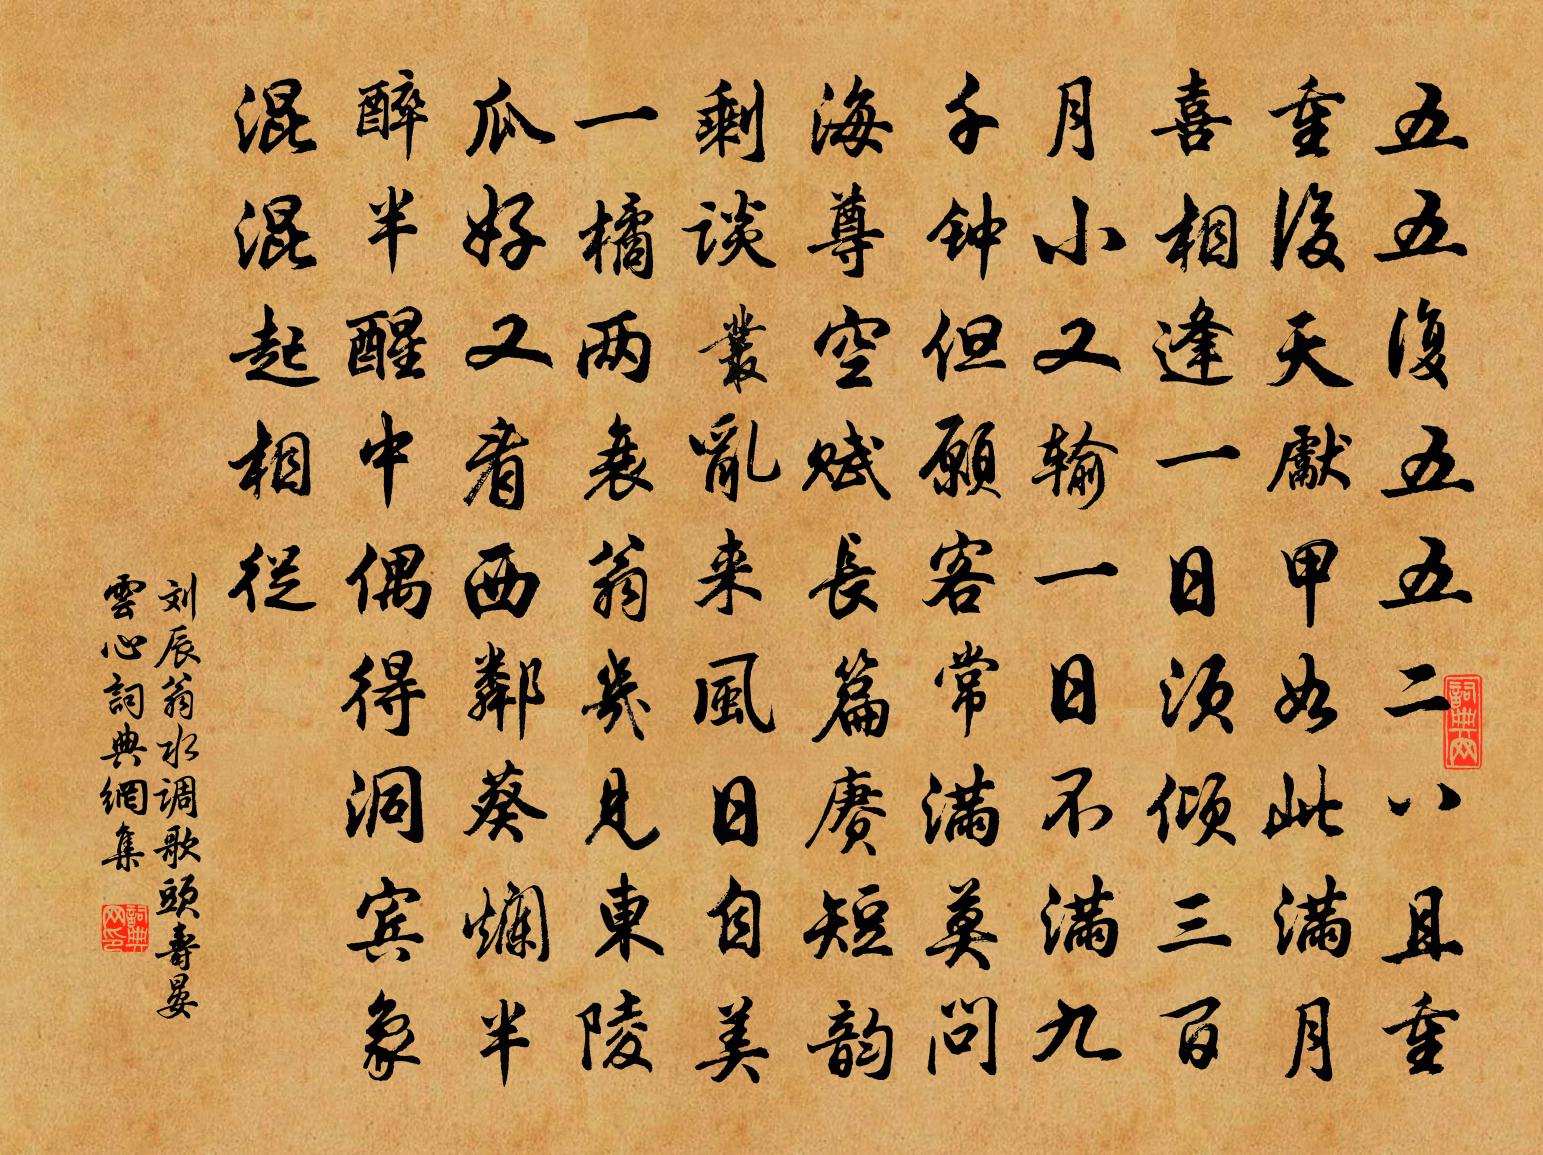 五五復五五二八且重
重復天獻甲如此滿月
喜相逢一日須傾三百
月小又输一日不滿九
千钟但願客常滿莫問
海尊空赋長篇賡短韵
剩谈叢亂来風日自美
一橘两衰翁幾見東陵
瓜好又看西鄰葵爛半
醉半醒中偶得洞宾象
混混起相從
刘辰翁水调歌頭壽晏
雲心詞典網集
詞典网
詞典